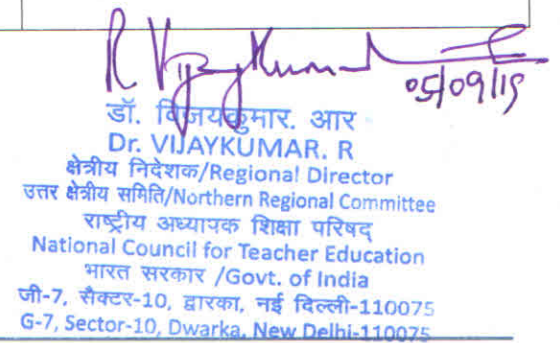 R Vijaykumar
05/09/19
डॉ. विजयकुमार. आर
Dr. VIJAYKUMAR. R
क्षेत्रीय निदेशक/Regional Director
उत्तर क्षेत्रीय समिति/Northern Regional Committee
राष्ट्रीय अध्यापक शिक्षा परिषद्
National Council for Teacher Education
भारत सरकार /Govt. of India
जी-7, सैक्टर-10, द्वारका, नई दिल्ली-110075
G-7, Sector-10, Dwarka, New Delhi-110075